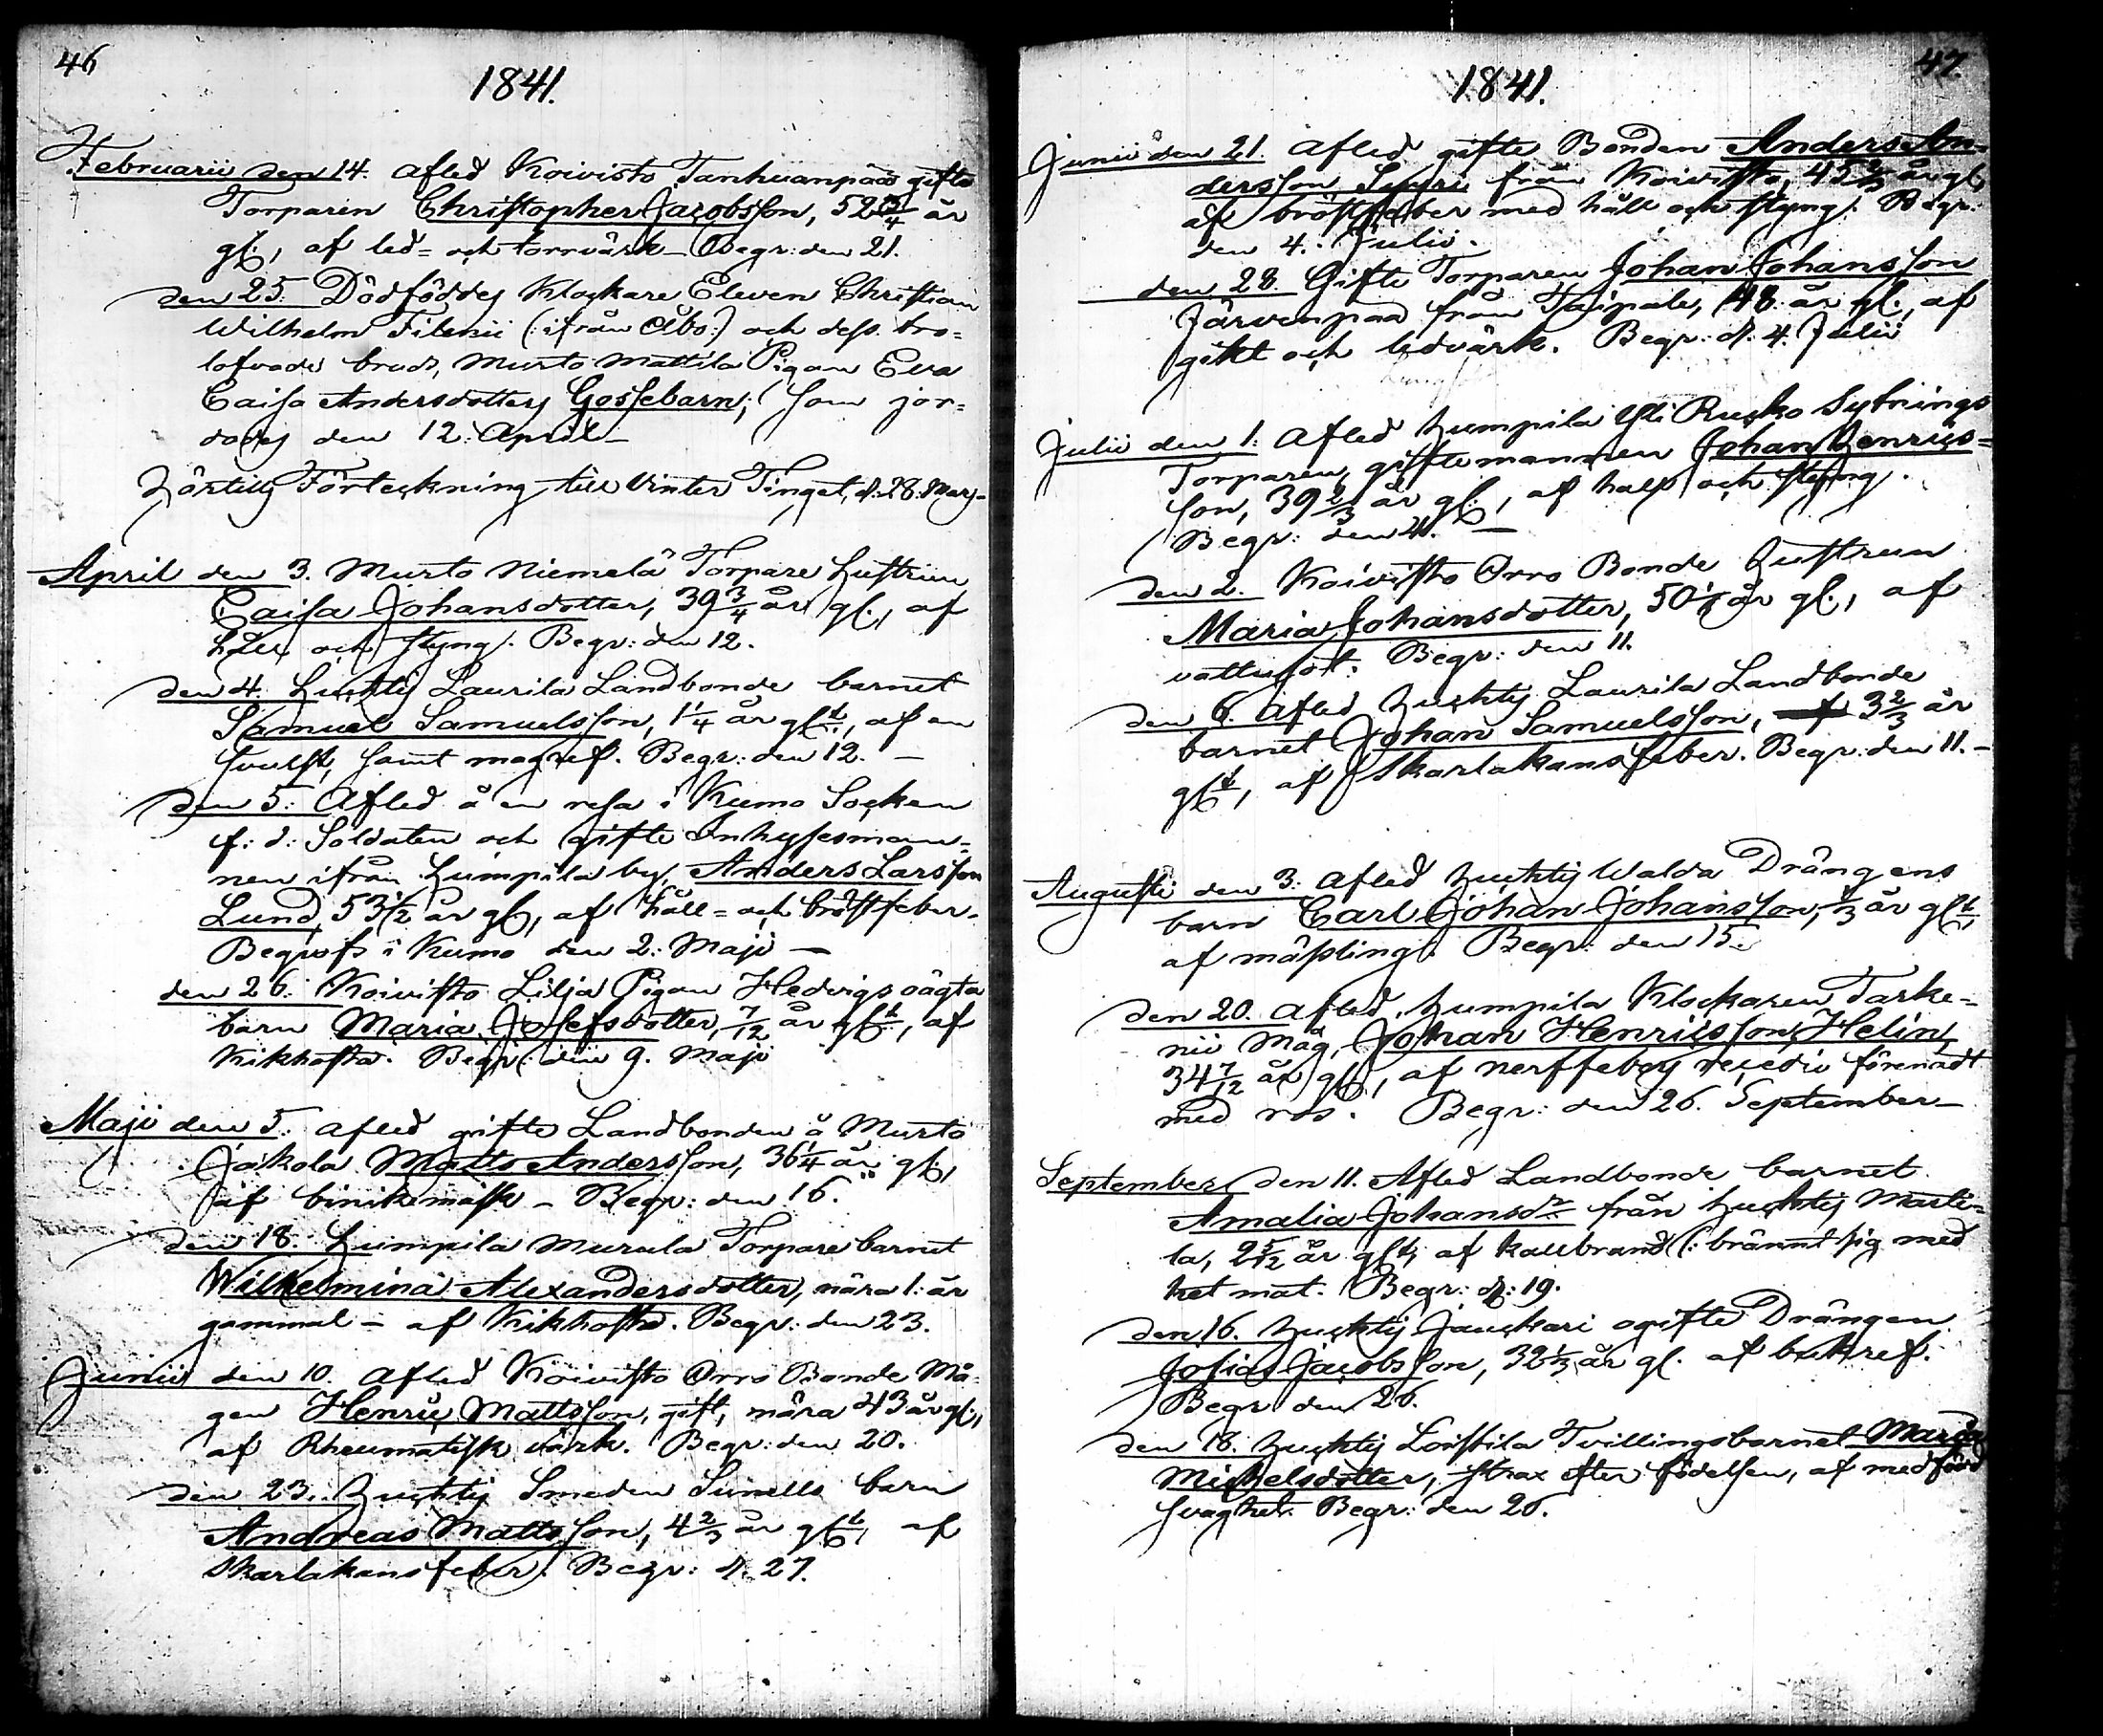 46
1841.
Februarii den 14. Afled Koivisto Tanhuanpää gifte
Torparen Christopher Jacobsson, 52 3/4 år
gl., af led= och torrvärk – Begr: den 21.
den 25: Dödföddes Klockare Eleven Christian
Wilhelm Filenii (: ifrån Åbo:) och dess tro=
lofvade brud, Murto Mattila Pigan Eva
Caisa Andersdotters Gossebarn; som jor=
dades den 12. April –
Hörtill Förteckning till Vinter Tinget, d. 28. Mars –
April den 3. Murto Niemelä Torpare hustrun
Caisa Johansdotter, 39 3/4 år gl., af
håll och styng. Begr: den 12.
den 4. Huchtis Laurila Landbonde barnet
Samuel Samuelsson, 1 1/4 år glt., af en
svulst, samt magref. Begr: den 12. –
den 5: Afled å en resa i Kumo Socken
f: d: Soldaten och gifte Inhysesman=
nen ifrån Humpila by, Anders Larsson
Lund, 53 1/2 år gl., af håll= och bröstfeber.
Begrofs i Kumo den 2: Maji –
den 26: Koivisto Lilja Pigan Hedvigs oägta
barn Maria Josefsdotter, 7/12 år glt., af
Kikhosta. Begr: den 9. Maji
Maji den 5. afled gifte Landbonden å Murto
Jakola Matts Andersson, 36 1/4 år gl.,
af binikemask – Begr: den 16.
den 18. Humpila Murula Torpare barnet
Wilhelmina Alexandersdotter, nära 1: år
gammal – af Kikhosta. Begr: den 23.
Junii den 10. Afled Koivisto Orro Bonde Må=
gen Henric Mattsson, gift, nära 43 år gl.,
af Rheumatisk värk. Begr: den 20.
den 23. Huchtis Smeden Sunells barn
Andreas Mattsson, 4 2/3 år glt., af
Skarlakansfeber. Begr: d. 27.
47.
1841.
Junii den 21. Afled gifte Bonden Anders An=
dersson Seppri från Koivisto, 45 2/3 år gl.,
af bröstfeber med håll och styng. Begr:
den 4. Julii.
den 28. Gifte Torparen Johan Johansson
Järvenpää från Taipale, 48 år gl., af
gikt och ledvärk. Begr: d. 4. Julii
Julii den 1: Afled Humpila Yli Rusko Sytnings
Torparen, giftemannen Johan Henrics=
son, 39 2/3 år gl., af håll och styng.
Begr: den 4. –
den 2. Koivisto Orro Bonde hustrun
Maria Johansdotter, 50 1/6 år gl., af
vattusot. Begr: den 11.
den 6. Afled Huchtis Laurila Landbonde
barnet Johan Samuelsson, 3 2/3 år
glt., af Skarlakansfeber. Begr: den 11. –
Augusti den 3. Afled Huchtis Walda Drängens
barn Carl Johan Johansson, 1/3 år glt.,
af mässling. Begr: den 15.
den 20. Afled Humpila Klockaren Tarke=
nii Måg, Johan Henricsson Helin,
34 7/12 år gl., af nerffebers recediv förenadt
med ros. Begr: den 26. September –
September den 11. Afled Landbonde barnet
Amalia Johansdr. från Huchtis Marti=
la, 2 5/12 år glt., af kallbrand (: brännt sig med
het mat. Begr: d: 19.
den 16. Huchtis Jauckari ogifte Drängen
Josias Jacobsson, 32 1/3 år gl. af bukref.
Begr den 26.
den 18. Huchtis Loistila Tvillingsbarnet Maria
Michelsdotter, strax efter födelsen, af medförd
svaghet. Begr: den 26.